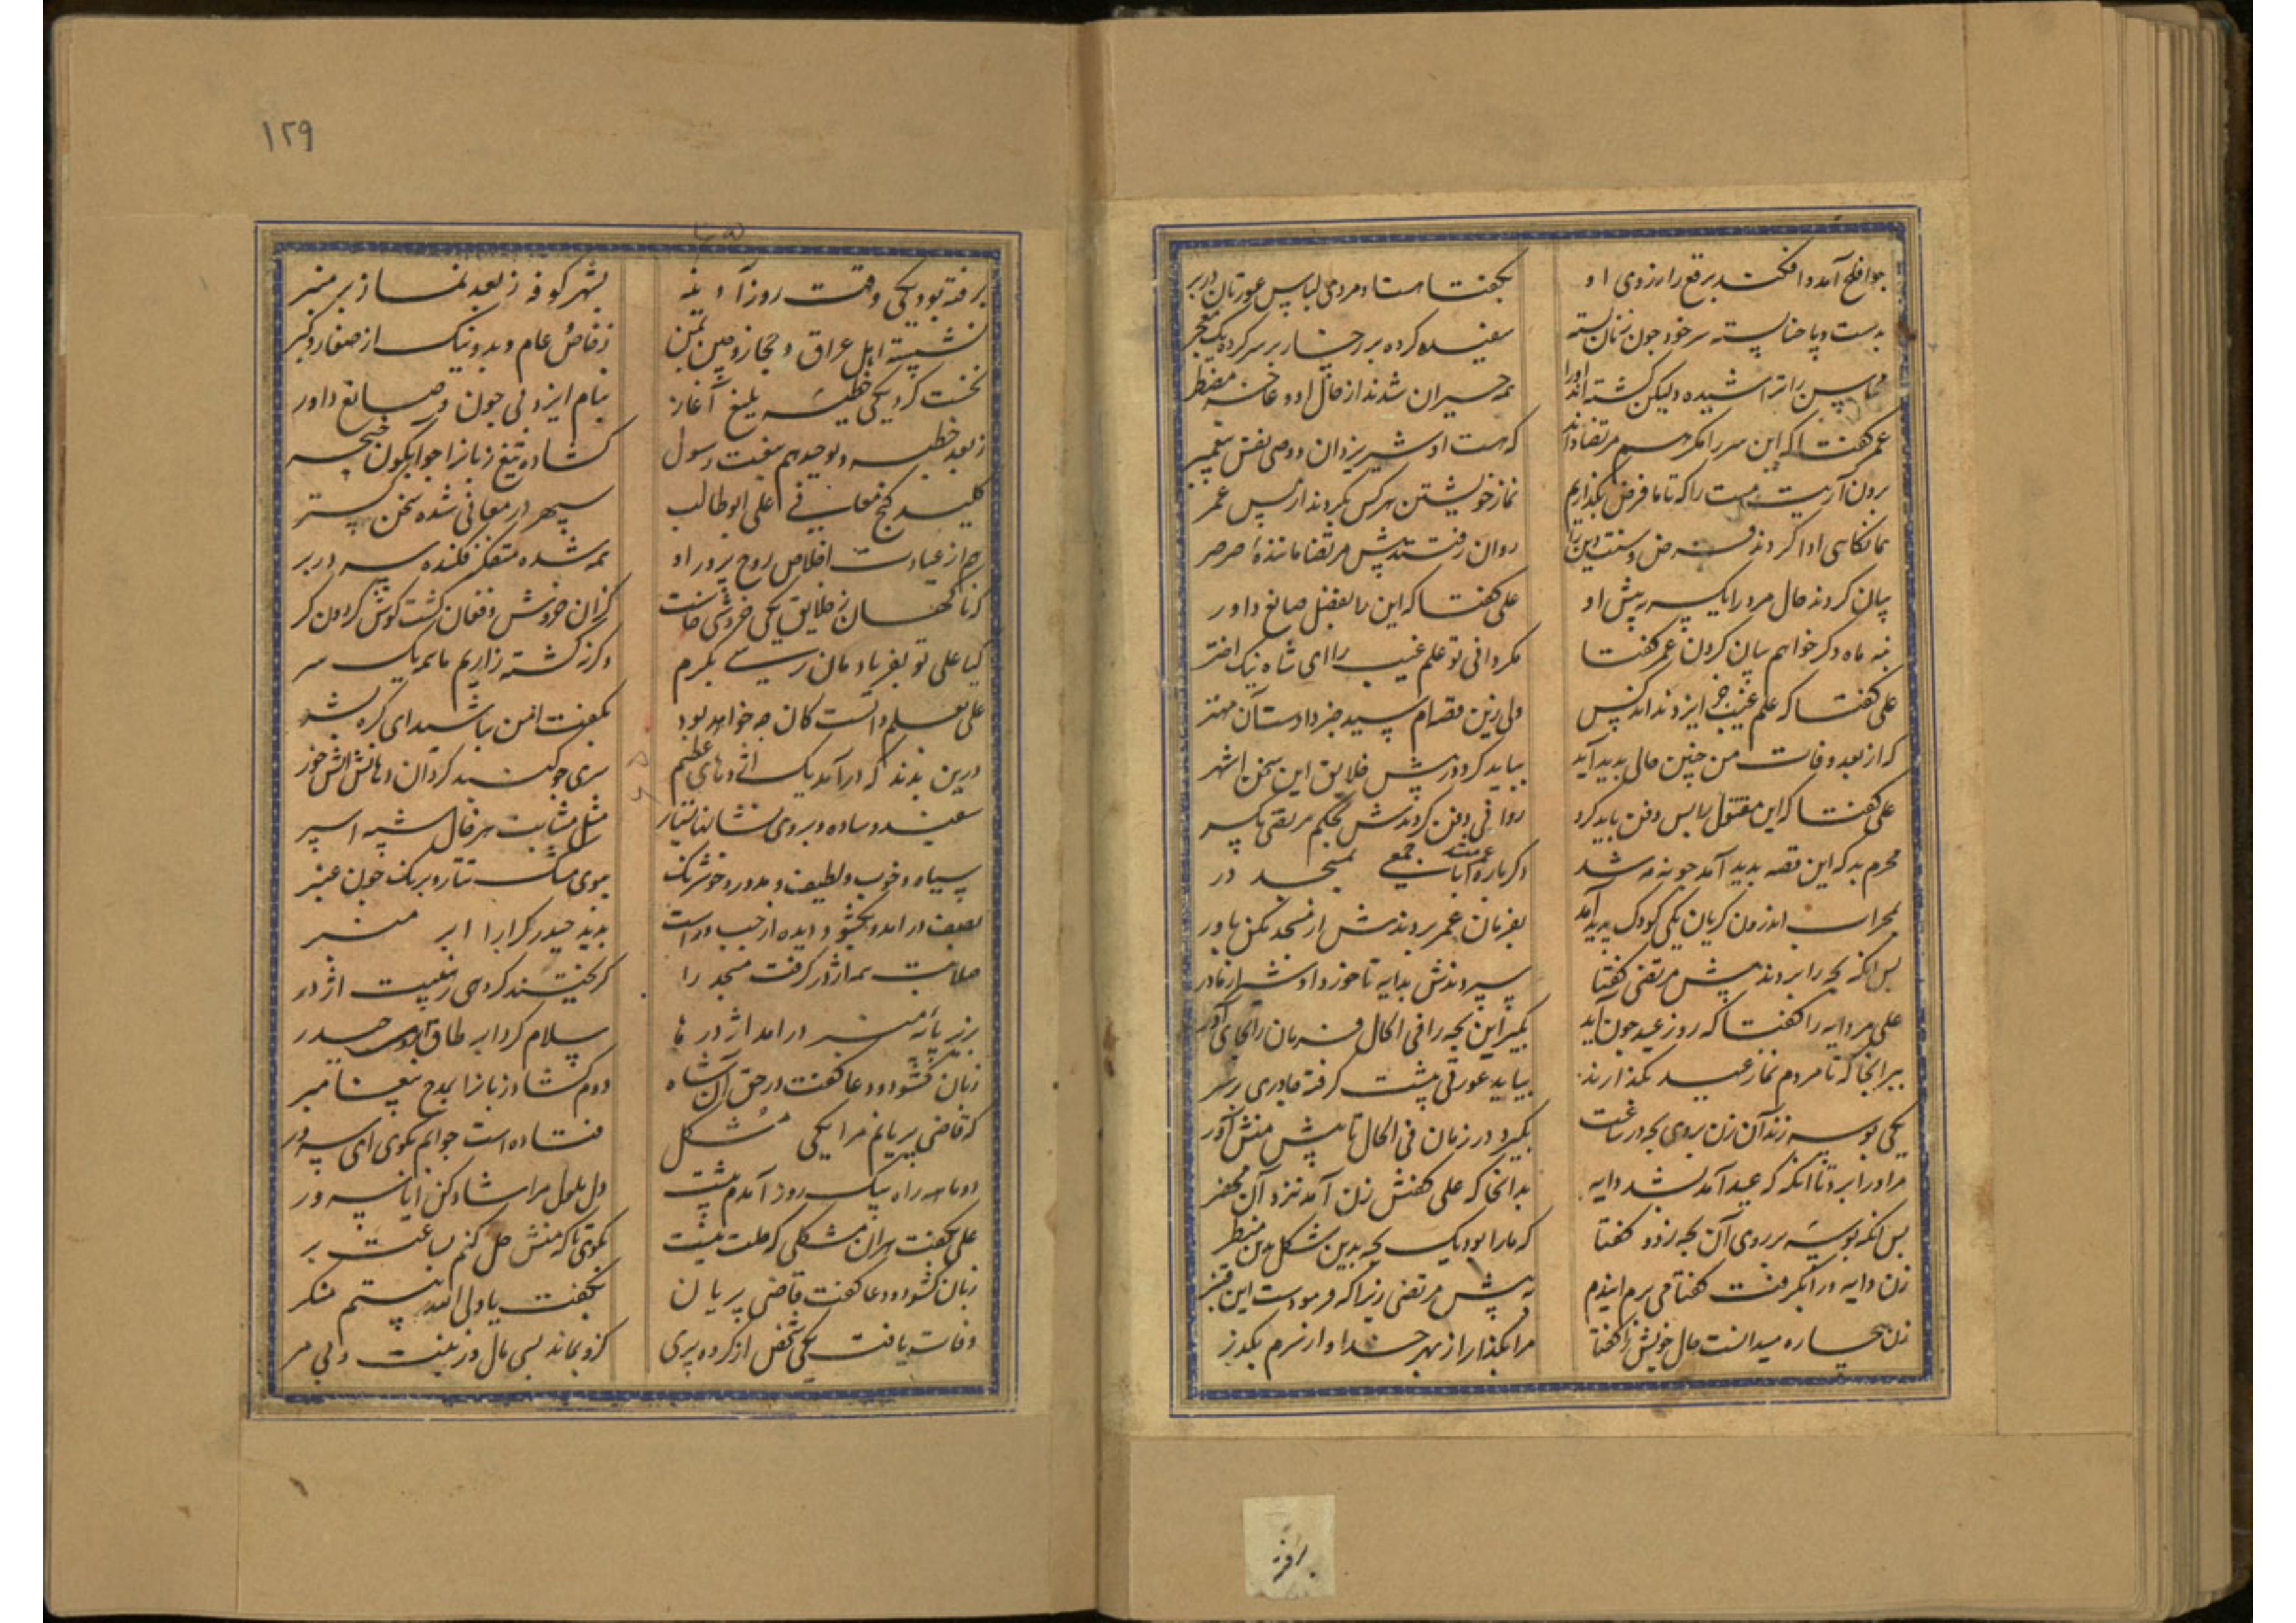 جوافلح آمد و افکند برقع را ز روی او بگفتا هست او مردی لباس عورتان در بر
بدست و پا حنا بسته سر خود چون زنان بسته سفیده کرده بر رخسار بر سر کرده یک معجر
محاسن را تراشیده ولیکن کشته‌اند او را همه حیران شدند از حال او و عاجز و مضطر
عمر گفتا که این سر را مگر هم مرتضا داند که هست او شیر یزدان و وصی نفس پیغمبر
برون آرید میت را که تا ما فرض بگذاریم نماز خویشتن هر کس بکردند از پس عمر
بمانکاسی ادا کردند فرض و سنت دین را روان رفتند پیش مرتضا ماننده صرصر
بیان کردند حال مرد را یکسر به پیش او علی گفتا که این را بفضل صانع داور
بنه ماه دکر خواهم بیان کردن عمر گفتا مکر دانی تو علم غیب را ای شاه نیک اختر
علی گفتا که علم غیب جز ایزد نداند کس ولی زین قصه‌ام سید خبر دادست آن مهتر
که از بعد وفات من چنین حالی پدید آید بباید کرد در پیش خلایق این سخن اشهر
علی گفتا که این مقتول را پس دفن باید کرد روانی دفن کردندش بحکم مرتقی یکسر
محرم بد که این قصه پدید آمد چو نه مه شد دکر باره جمعی بمسجد در
بمحراب اندرون کریان یکی کودک پدید آمد بفرمان عمر بردندش از مسجد
پس انکه بچه را بردند پیش مرتضی گفتا سپردندش بدایه تا خورد او شیر از مادر
علی مر دایه را گفتا که روز عید چون آید بگیر این بچه را فی الحال فرمان را بجای آور
ببر آنجا که تا مردم نماز عید بگذارند بیاید عورتی پیشت گرفته چادری بر سر
یکی بوسه زند آن زن بروی بچه در ساعت بگیرد در زمان فی الحال تا پیش منش آور
مر او را برد تا انکه که عید آمد بشد دایه بدانجا که علی گفتش زن آمد نزد آن محضر
پس انکه بوسه بر روی آن بچه زد و گفتا که ما را بود یک بچه بدین شکل و بدین منظر
زن دایه ورا بگرفت گفتا می برم ایندم به پیش مرتضی زیرا که فرمودست این قنبر
زن بیچاره میدانست حال خویش را گفتا مرا بگذار از بهر خدا و از سرم بگذر
برفته
۱۲۹
برفته بود یکی وقت روز آدینه بشهر کوفه ز بعد نماز بر منبر
نشسته اهل عراق و حجاز و چین و یمن ز خاص و عام و بد و نیک از صغار و کبر
نخست کرد یکی خطبه بلیغ آغاز بنام ایزد بی چون و صانع داور
ز بعد خطبه و توحید هم بنعت رسول کشاده تیغ زبان را چو آبگون خنجر
کلید گنج معانی علی ابو طالب سپهر در معانی شده سخن گستر
هم از عبادت اخلاص روح پرور او همه شده متفکر فکنده سر در بر
که ناگهان ز خلایق یکی خروشی خاست کزان خروش و فغان گشت گوش گردون کر
کیا علی تو بفریاد مان رسی بکرم وگرنه کشته زاریم ما همه یک سر
علی بعلم دانست کان چه خواهد بود بگفت ایمن باشید ای گره بشر
درین بدند که درآمد یک اژدهای عظیم سری چو گنبد گردان دهانش آتش خور
سفید و ساده و بروی نشانها بسیار مثل مشابهت هر خال شبه اسپر
سیاه و خوب و لطیف و مدور و خوشرنگ ببوی مشک تتار و برنگ چون عنبر
بصف در آمد و بگشود دیده از چپ و راست بدید حیدر کرار را ابر منبر
صلابت سر اژدر گرفت مسجد را گریختند گروهی ز هیبت اژدر
بزیر پایه منبر درآمد اژدرها سلام کرد ابر طاق ابروی حیدر
زبان گشود و دعا گفت در حق آن شاه دوم گشاد زبان را بمدح پیغامبر
که قاضی پریانم مرا یکی مشکل فتاده است جوابم بگوی ای سرور
دو ماهه راه بیک روز آمدم پیشت دل ملول مرا شاد کن ایا سرور
علی بگفت هر آن مشکلی که هست بگوی تا که منش حل کنم بساعت بر
زبان گشود و دعا گفت قاضی پریان بگفت یا ولی الله نیستم منکر
وفات یافت یکی شخص از گروه پری کزو بماند بسی مال و زینت و بی مر